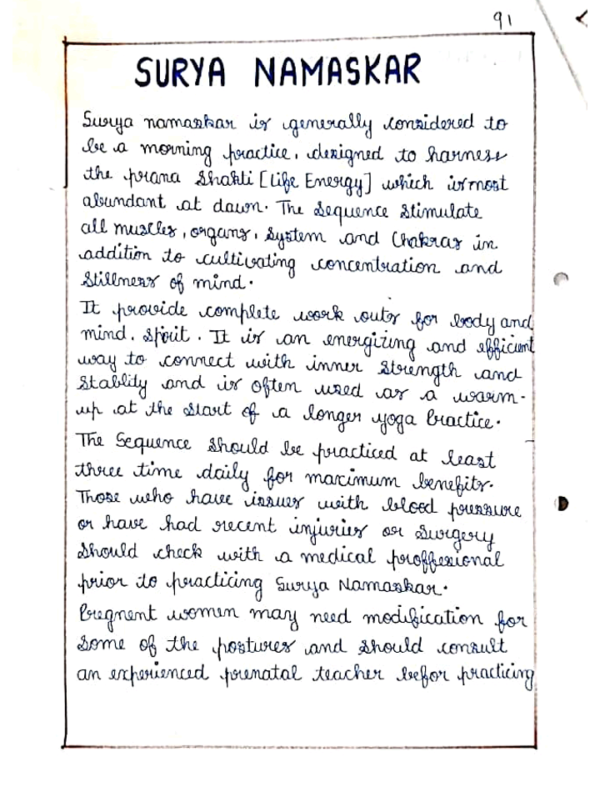 91
SURYA NAMASKAR
Surya namaskar is generally considered to
be a morning practice, designed to harness
the prana Shakti [Life Energy] which is most
abundant at dawn. The Sequence Stimulate
all muscles, organs, System and Chakras in
addition to cultivating concentration and
Stillness of mind.
It provide complete work outs for body and
mind, Spirit. It is an energizing and efficient
way to connect with inner Strength and
Stablity and is often used as a warm-
up at the start of a longer yoga Practice.
The Sequence Should be practiced at least
three time daily for maximum benefits.
Those who have issues with blood pressure
or have had recent injuries or Surgery
Should check with a medical proffesional
prior to practicing Surya Namaskar.
Pregnent women may need modification for
Some of the postures and should consult
an experienced prenatal teacher befor practicing